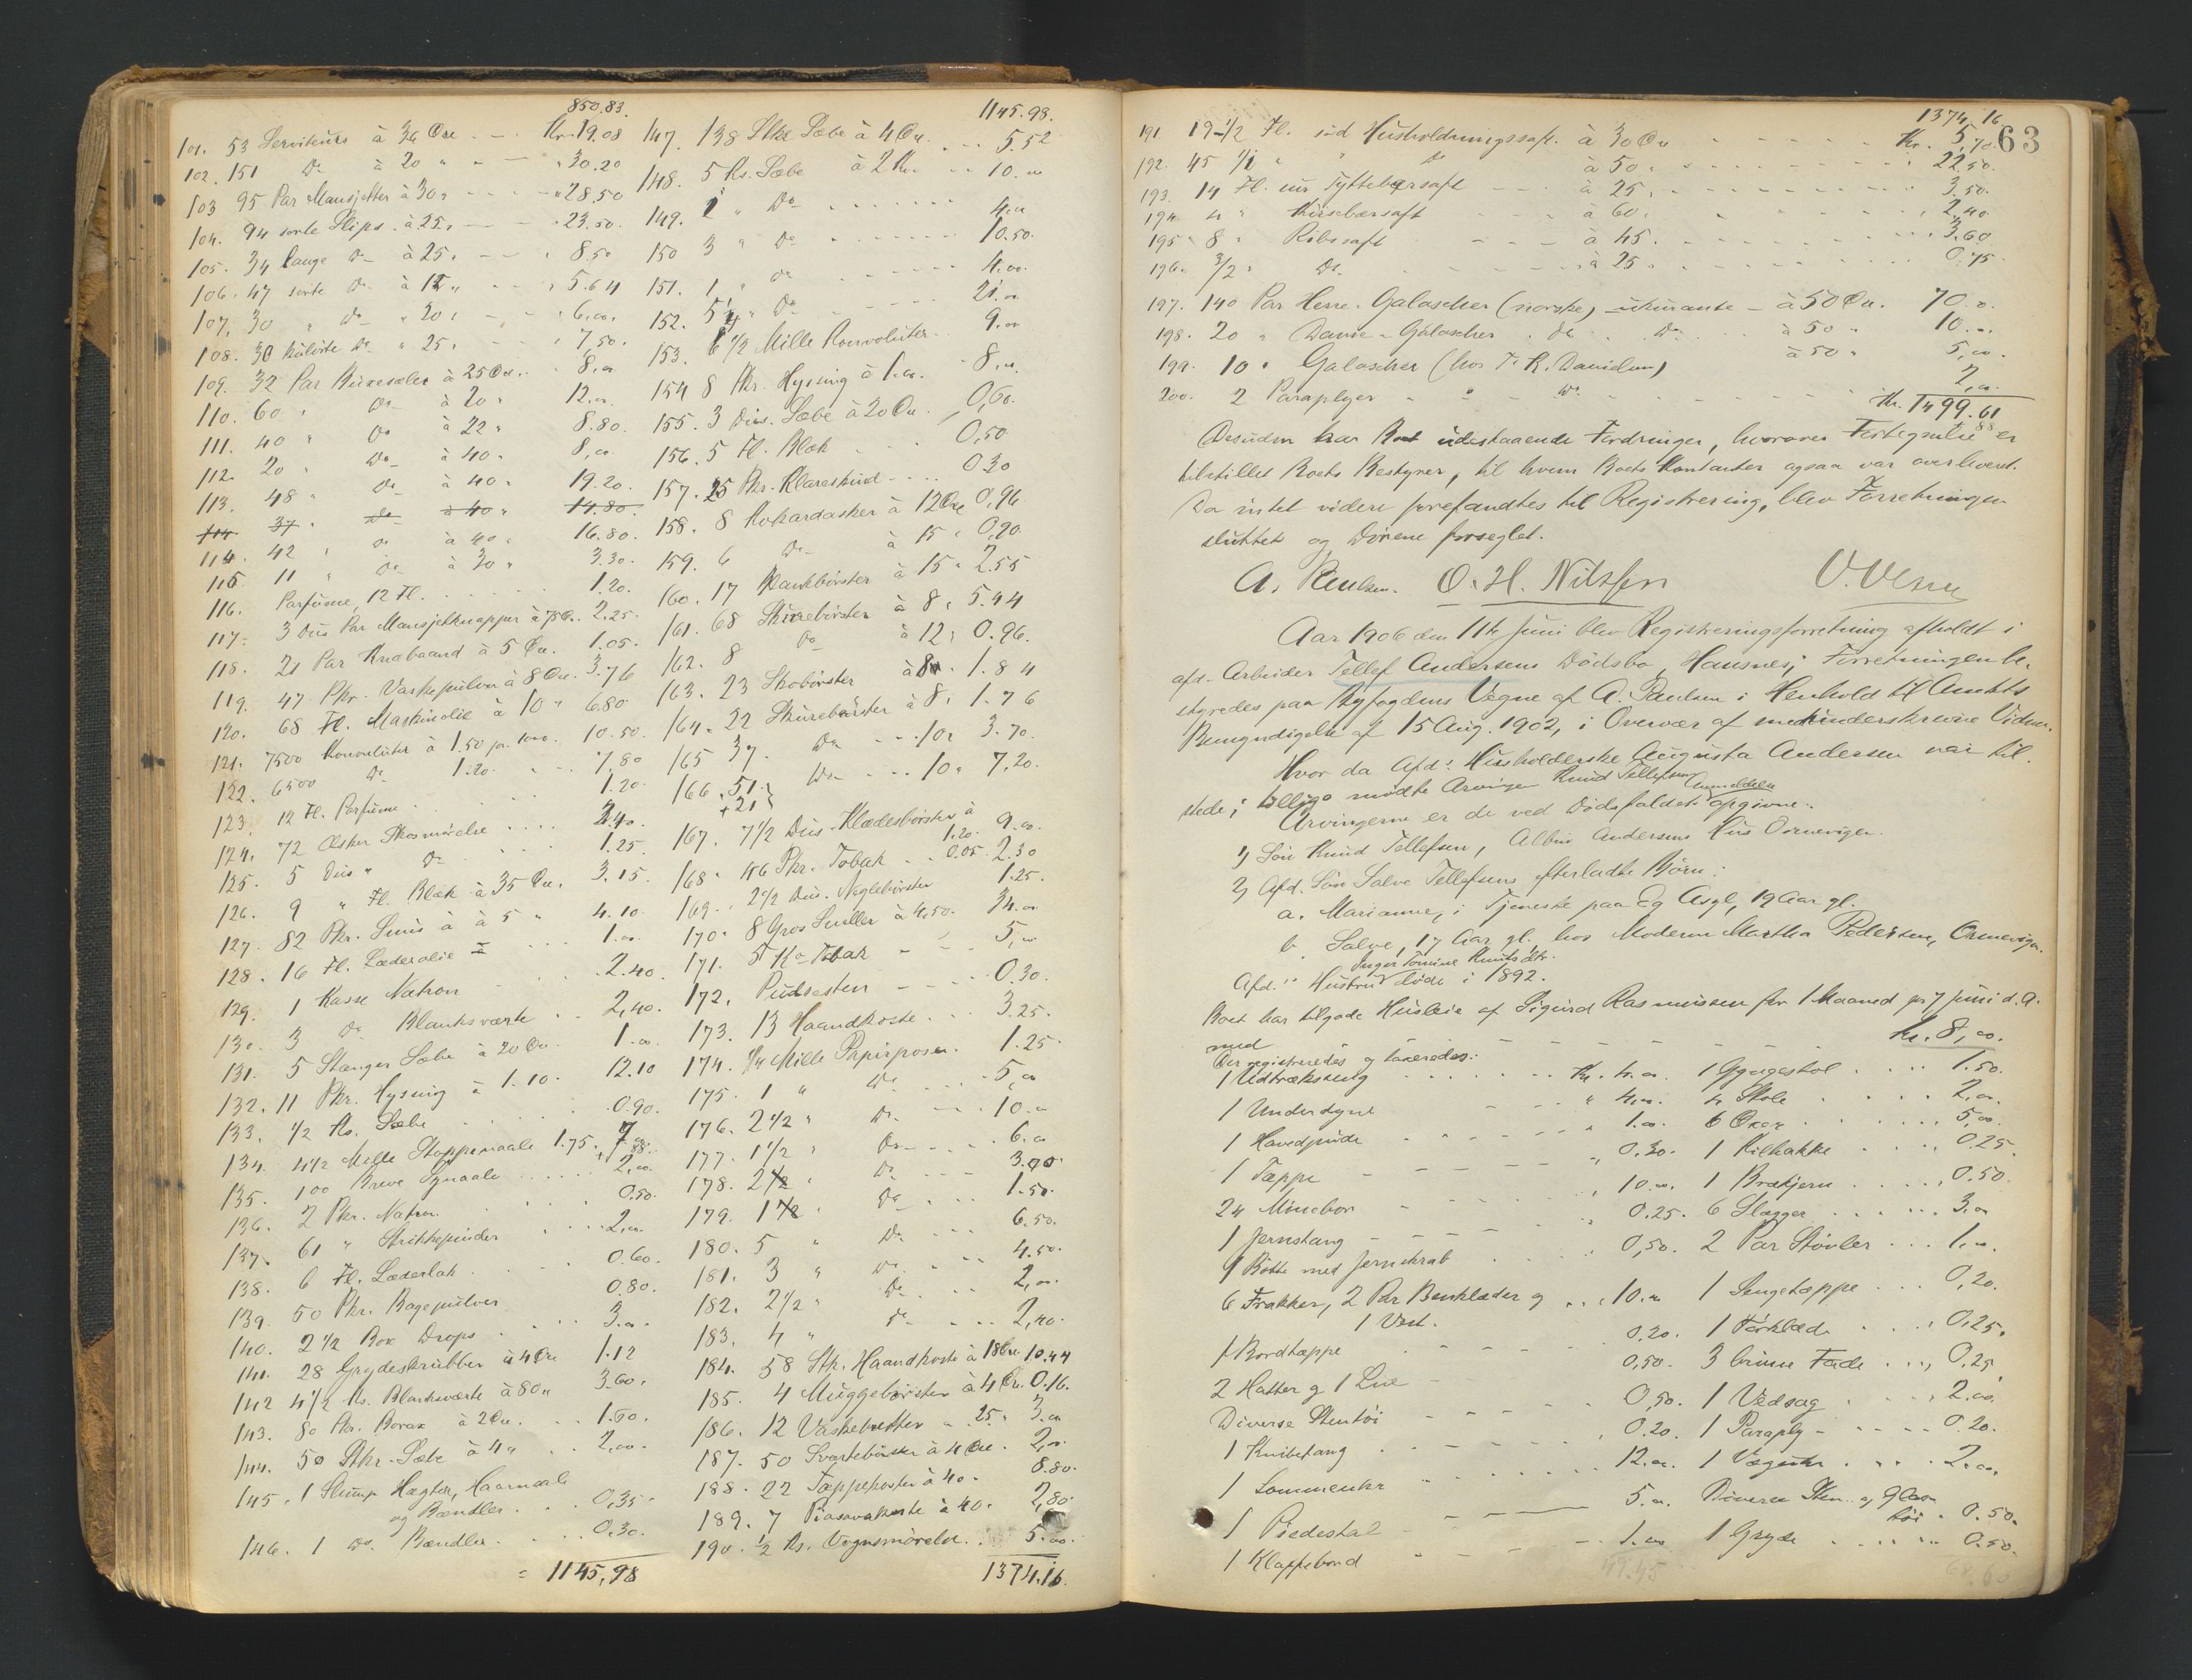 850.83.
101. 53 Serviteurs à 36 Øre - - Kr. 19.08
102. 151 Do à 20 " - - " 30.20
103 95 Par Mansjetter à 30 " - - - " 28,50
104. 94 sorte Slips. à 25 " - - " 23.50.
105. 34 lange Do à 25 " - - " 8.50
106. 47 sorte Do à 12 " - - " 5.64
107. 30 " Do " 20 " - - " 6,00.
108. 30 kulørte Do " 25 " - - " 7,50.
109. 32 Par Buxeseler à 25 Øre. . " 8,00
110. 60 " Do à 20 " 12.00
111. 40 " Do à 22 " 8.80.
112. 20 " Do à 40 " 8,00
113. 48 " Do à 40 " 19.20.
114 37 " Do à 40 " 14.80.
114. 42 " Do à 40 " 16.80.
115. 11 " Do à 30 " 3.30.
116. Parfume, 12 Fl. . . . . . 1.20.
117. 3 Dus Par Mansjetknapper à 75 Ø. 2.25.
118. 21 Par Knæbaand à 5 Øre. 1.05.
119. 47 Pkr. Vaskepulver à 8 Øre. 3.76
120. 68 Fl. Maskinolie à 10 " 6.80
121. 7500 Konvolutter à 1.50 pr. 1000. 10.50.
122. 6500 Do 1.20. - - 7,80
123. 12 Fl. Parfume . . . . 1.20.
124. 72 Æsker Skosmørelse . . . . 2.40.
125. 5 Dus " Do . . . 1.25.
126. 9 " Fl. Blæk à 35 Øre. 3.15.
127. 82 Pkr. Smus à 5 " 4.10.
128. 16 Fl. Læderolie . . . 1.00.
129. 1 Kasse Natron . . 2.40.
130. 3 Do Blanksværte . . 2,40.
131. 5 Stænger Sæbe à 20 Øre. 1.00.
132. 11 Pkr. Hysing à 1.10. 12.10
133. 1/2 Ks. Sæbe . . . . . 0.90.
134. 4 1/2 Mille Stoppenaale 1.75. 7.88.
135. 100 Breve Synaale . . . . . 2,00.
136. 2 Pkr. Natron . . . 0.50.
137. 61 " Strikkepinder . . . . 2.00
138. 6 Fl. Læderlak . . . 0.60.
139. 50 Pkr. Bagepulver . . 0.80.
140. 2 1/2 Box Drops . . . . 3.00.
141. 28 Grydeskrubber à 4 Øre 1.12
142 4 1/2 Ks. Blanksværte à 80 " 3.60.
143. 80 Pkr. Borax à 2 Øre. . . 1.60.
144. 50 Stkr. Sæbe à 4 " . . 2,00.
145. 1 Slump Hægter, Haarnaale
og Bændler . . . 0,35.
146. 1 Do. Bændler. . . . 0.30.
= 1145,98
1145.98.
147. 138 Stkr Sæbe à 4 Øre. . . . 5.52
148. 5 Ks. Sæbe à 2 Kr. . . 10.00
149. 1 " Do . . . . . . . 4.00
150 3 " Do . . . . . . . 10.50.
151. 1 " Do - - - - - - 4.00.
152. 5 1/4 " Do - - - - 21.00
153. 6 1/2 Mille Konvolutter . . 9.00
154 8 Pkr. Hysing à 1.00. - 8.00.
155. 3 Dus. Sæbe à 20 Øre. 0,60.
156. 5 Fl. Blæk . . 0,50
157. 25 Pkr. Klareskind . . . . 0.30
158. 8 à 12 Øre 0,96
159. 6 Do à 15 " 0,90
160. 17 Bankbørster à 15 " 2.55
161. 68 Skurebørster à 8 " 5.44
162. 8 Do à 12 " 0.96.
163. 23 Skobørster à 8 ". 1.84
164. 22 Skurebørster à 8 " 1.76
165 37 Do . . . 10 " 3.70.
166. 51 + 21 } Do . . . 10 " 7,20.
167. 7 1/2 Dus. Klædesbørster à 1.20. 9.00.
168. 46 Pkr. Tobak . . 0.05 2.30
169. 2 1/2 Dus. Neglebørster 1.25.
170. 8 Gros Snller à 4.50. 34.00
171. 5 Ko Tobak - - - 5,00
172. Pudsesten - - - - 0.30.
173. 13 Haandkoste . . . 3.25.
174. 1/4 Mille Papirposer. 1.25.
175. 1 " Do . . . . 5,00
176. 2 1/2 " Do - - . 10.00
177. 1 1/2 " Do - - - . 6.00
178. 2 1/2 " Do - - - 3.00.
179. 1 1/2 " Do . . . 1.50.
180. 5 " Do . . . 6.50.
181. 3 " Do . . . 4.50.
182. 2 1/2 " Do . . . 2,00.
183. 4 " Do - - - - 2,40.
184. 58 Stk. Haandkoste à 18 Øre 10.44
185. 4 Muggebørster à 4 Ør. 0.16.
186. 12 Vaskebretter " 25 " 3.00
187. 50 Sværtebørster à 4 Øre. 2,00.
188. 22 Tæppekoster à 40 " 8.80.
189. 7 Piasavakoste à 40 " 2,80.
190. 1/2 Ks. Vognsmørelse . . 5.00.
1374.16.
63
1374,16
191. 19 1/2 Fl. sød Husholdningssaft. à 30 Øre - - - - Kr. 5,70.
192. 45 1/1 " " Do à 50 " - - - - " 22,50.
193. 14 Fl. sur Tyttebærsaft - - - à 25 " - - - - " 3.50.
194. 4 " Kirsebærsaft - - - à 60 " - - - " 2,40
195. 8 " Ribssaft - - - à 45 " - - - - " 3.60
196. 3/2 " Do. - - - - à 25 " - - - - 0,75
197. 140 Par Herre-Galoscher (norske) ukurante - à 50 Øre. 70.00.
198. 20 " Dame-Galoscher . do . . Do - - à 50 " 10.00.
199. 10 " Galoscher (hos T. R. Danielsen) à 50 " 5,00.
200. 2 Paraplyer - " - Do - - - - 2,00.
Kr. 1499.61
88
Desuden har Boet udestaaende Fordringer, hvorover Fortegnelse er
tilstillet Boets Bestyrer, til hvem Boets Kontanter ogsaa var overleveret.
Da intet videre forefandtes til Registrering, blev Forretningen
sluttet og Dørene forseglet.
A. Paulsen. O. H. Nilssen
Aar 1906 den 11te Juni blev Registreringsforretning afholdt i
afd. Arbeider Tellef Andersens Dødsbo, Hausnes; Forretningen be-
styredes paa Byfogdens Vegne af A. Paulsen i Henhold til Amtets
Bemyndigelse af 15 Aug. 1902, i Overvær af medunderskrevne Vidner.
Hvor da Afd.s Husholderske Augusta Andersen var til-
stede; tillige mødte Arvingen Knud Tellefsen.
Anmeldelsen
Arvingerne er de ved Dødsfaldet opgivne:
1) Søn Knud Tellefsen, Albin Andersens Hus Ormevigen.
2) Afd. Søn Salve Tellefsens efterladte Børn:
a. Marianne, i Tjeneste paa Eg Asyl, 19 Aar gl.
b. Salve, 17 Aar gl. hos Moderen Martha Pedersen, Ormevigen.
Inger Tomine Knuts dtr.
Afd.s Hustru døde i 1892.
Boet har tilgode Husleie af Sigurd Rasmussen for 1 Maaned pr 7 Juni d. A.
med - - - - - - - - Kr. 8,00.
Der registreredes og taxeredes:
1 Udtræksseng . . . . . . Kr. 4.00. 1 Gyngestol . . . . 1.50.
1 Underdyne - - - " 4.00. 4 Stole . . . . 2,00.
1 Hovedpude . . - - - " 1.00. 6 Øxer . . . . . 5,00.
1 Tæppe - - - - - - " 0.30. 1 Kilhakke . . . . 0.25.
24 Minebor - - - - " 10.00. 1 Brækjern . . . . . 0.50.
1 Jernstang - - - - " 0.25. 6 Slægger . . . . . . 3.00
1 Bøtte med Jernskrab . . . 0,50. 2 Par Støvler . . . 1.00.
6 Frakker, 2 Par Benklæder og . . . 10.00 1 Sengetæppe . . . 0,20.
1 Vest.
1 Bordtæppe - - - - - 0.20. 1 Forklæde . . . 0,25.
2 Hatter og 1 Lue - 0,50. 3 brune Fade . . . , 0,25
Diverse Stentøi - - - - - 0,50. 1 Vedsag . . . . 2.00.
1 Knibetang . . - - - - " 0.20. 1 Paraply - - - - - 0.20.
1 Lommeuhr . . . . . . . 12.00. 1 Vægur . . . . 2.00.
1 Piedestal - - - - 5.00. Diverse Sten- og Glas-
tøi . 0.50.
1 Klappebord - - - - - 1.00 1 Gryde . . . . . . 0.50.
49.45 68.60